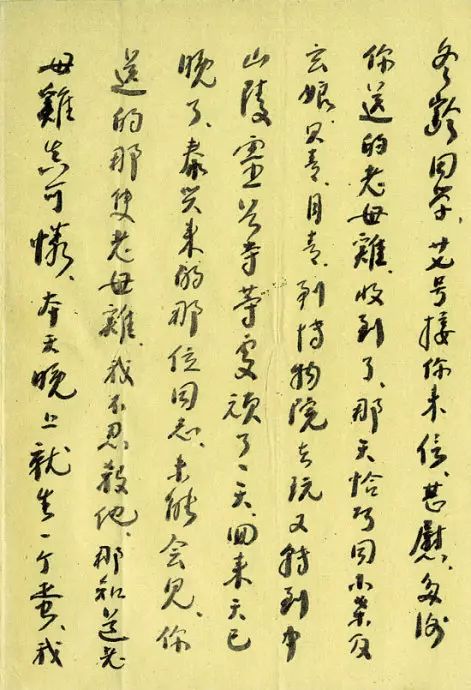 冬龄同学、廿九号接你来信、甚慰、多谢
你送的老母雞、收到了、那天恰巧同小葉及
云娘、只青、月青、到博物院去玩又转到中
山陵灵谷寺等处顽了一天、回来天已
晚了、泰兴来的那位同志、未能会见、你
送的那隻老母雞、我不忍殺他、那知道老
母雞真可憐、本天晚上就生一个蛋、我